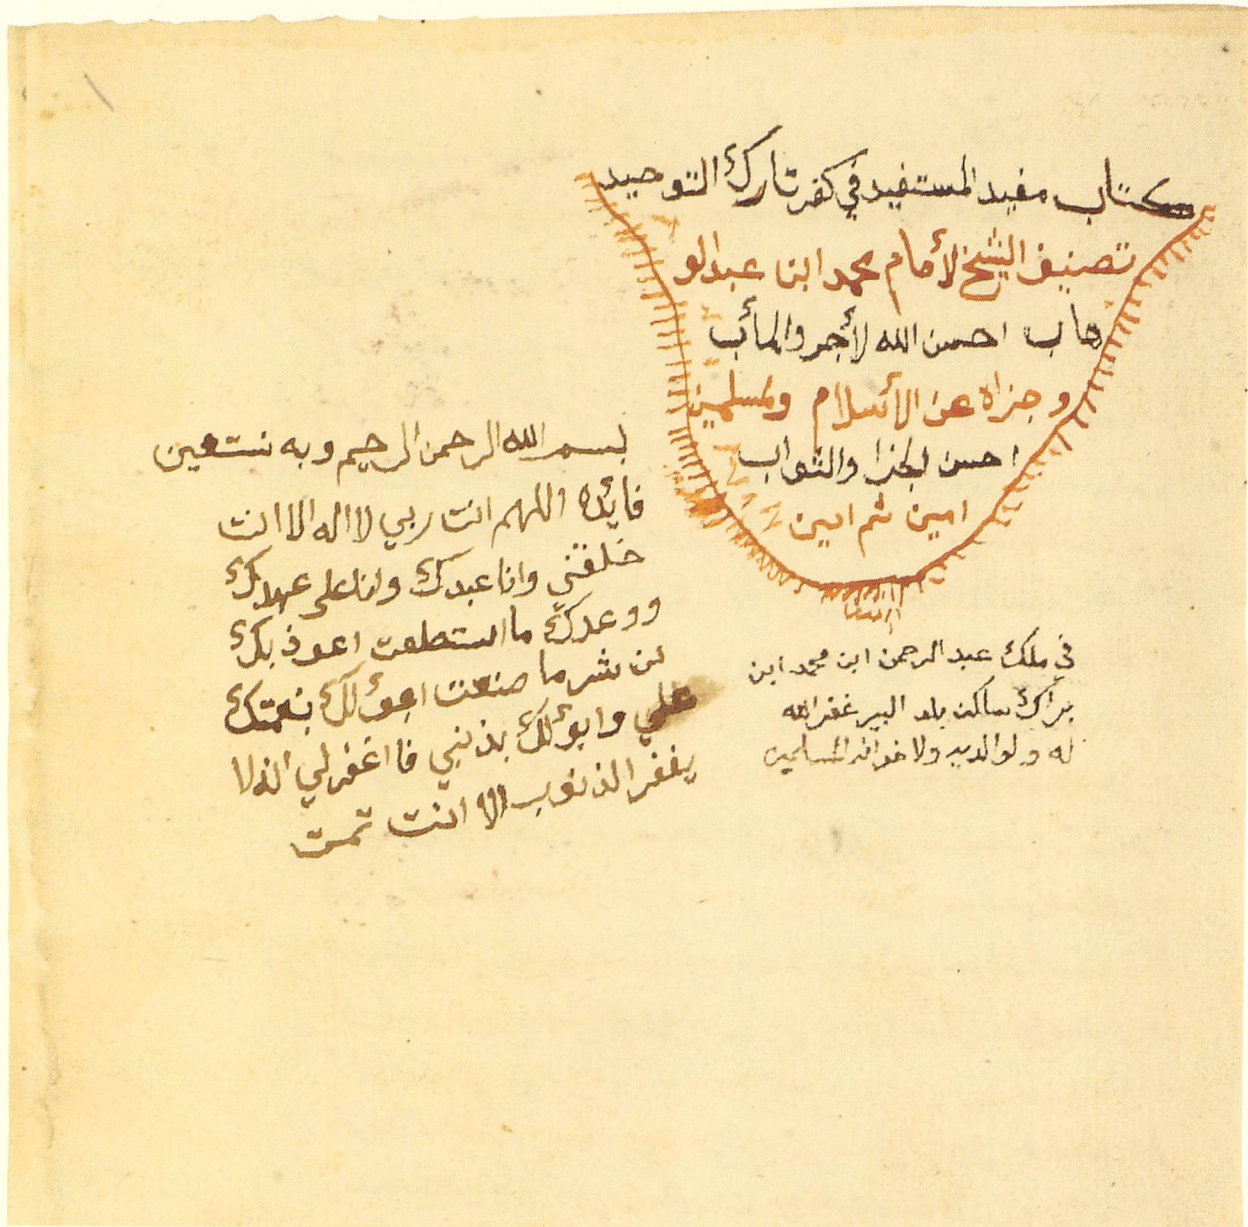 كتاب مفيد المستفيد في كفر تارك التوحيد
تصنيف الشيخ لأمام محمد ابن عبد الو
هاب احسن الله لأجر والمأب
وجزاه عن الأسلام ولمسلمين
احسن الجزا والثواب
امين ثم امين
في ملك عبد الرحمن ابن محمد ابن
براك ساكن بلد البير غفر الله
له ولوالديه ولاخوانه المسلمين
بسم الله الرحمن الرحيم وبه نستعين
فائده اللهم انت ربي لا اله الا انت
خلقتني وانا عبدك وانا على عهدك
ووعدك ما استطعت اعوذ بك
من شر ما صنعت ابوؤ لك بنعمتك
علي وابوؤ لك بذنبي فا اغفر لي انه لا
يغفر الذنوب الا انت تمت